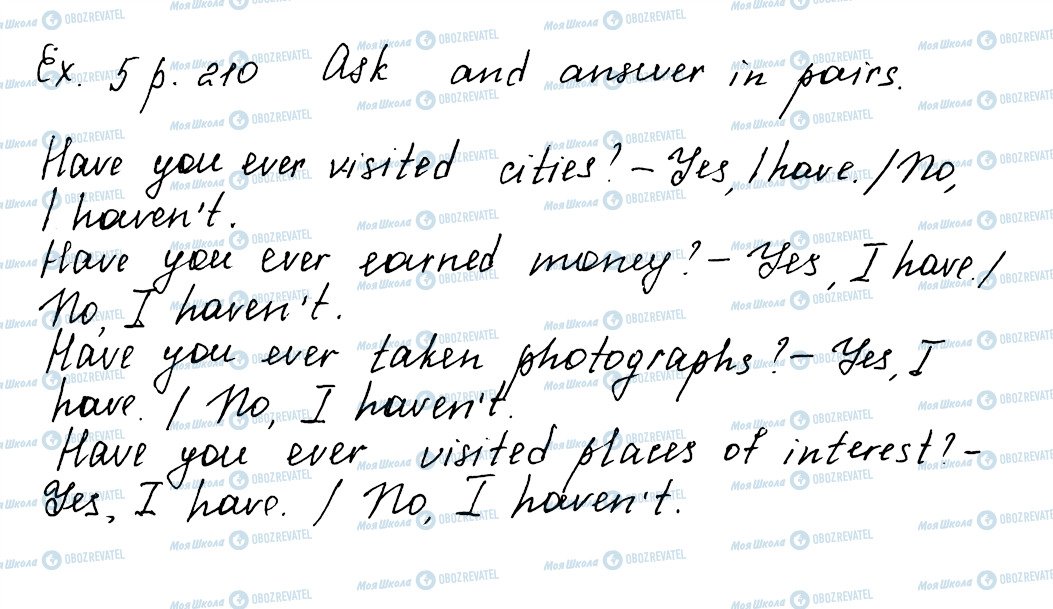 Ex. 5 p. 210 Ask and answer in pairs.
Have you ever visited cities? – Yes, I have. / No,
I haven't.
Have you ever earned money? – Yes, I have. /
No, I haven't.
Have you ever taken photographs? – Yes, I
have. / No, I haven't.
Have you ever visited places of interest? –
Yes, I have. / No, I haven't.
Моя Школа OBOZREVATEL